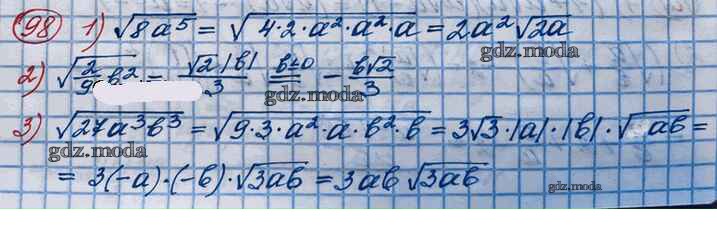 98 1) √8a⁵ = √4·2·a²·a²·a = 2a²√2a
gdz.moda
2) √2/9 b² = √2|b|/3 b≤0 = - b√2/3
gdz.moda
3) √27a³b³ = √9·3·a²·a·b²·b = 3√3·|a|·|b|·√ab =
gdz.moda
= 3(-a)·(-b)·√3ab = 3ab√3ab
gdz.moda